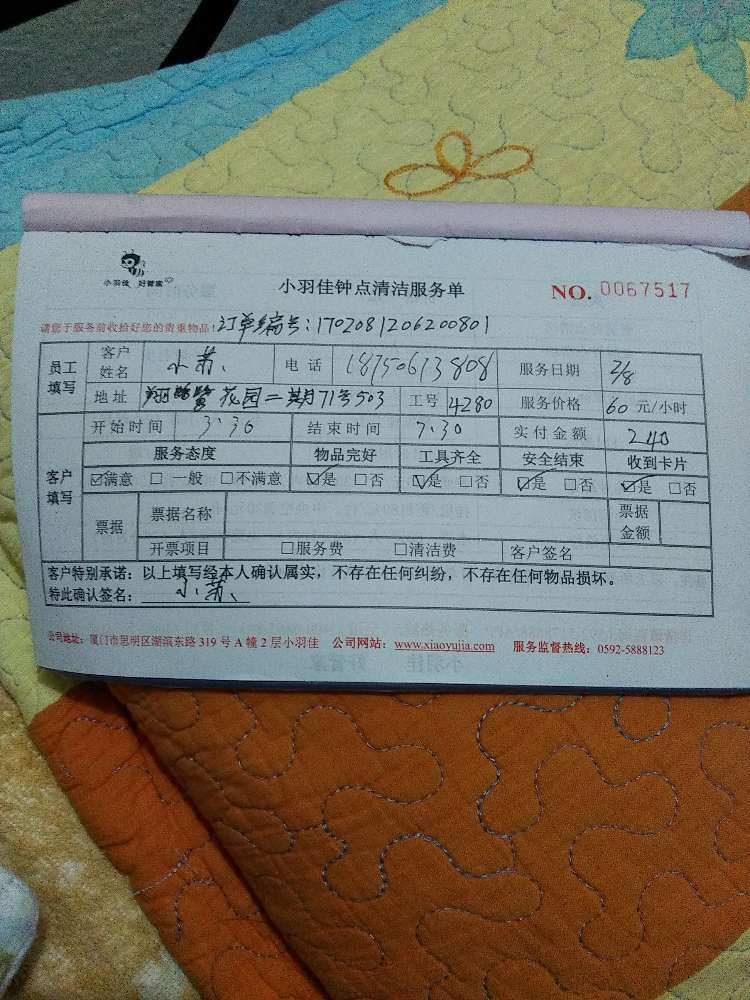 小羽佳 好管家
小羽佳钟点清洁服务单
NO. 0067517
请您于服务前收拾好您的贵重物品! 订单编号:1702081206200801
员工填写 客户姓名 小苏、 电话 18750613808 服务日期 2/8
地址 花园二期71号503 工号 4280 服务价格 60 元/小时
客户填写 开始时间 3:30 结束时间 7:30 实付金额 240
服务态度 物品完好 工具齐全 安全结束 收到卡片
☑满意 □一般 □不满意 ☑是 □否 ☑是 □否 ☑是 □否 ☑是 □否
票据 票据名称 票据金额
开票项目 □服务费 □清洁费 客户签名
客户特别承诺:以上填写经本人确认属实,不存在任何纠纷,不存在任何物品损坏。
特此确认签名: 小苏、
公司地址:厦门市思明区湖滨东路 319 号 A 幢 2 层小羽佳 公司网站:www.xiaoyujia.com 服务监督热线:0592-5888123